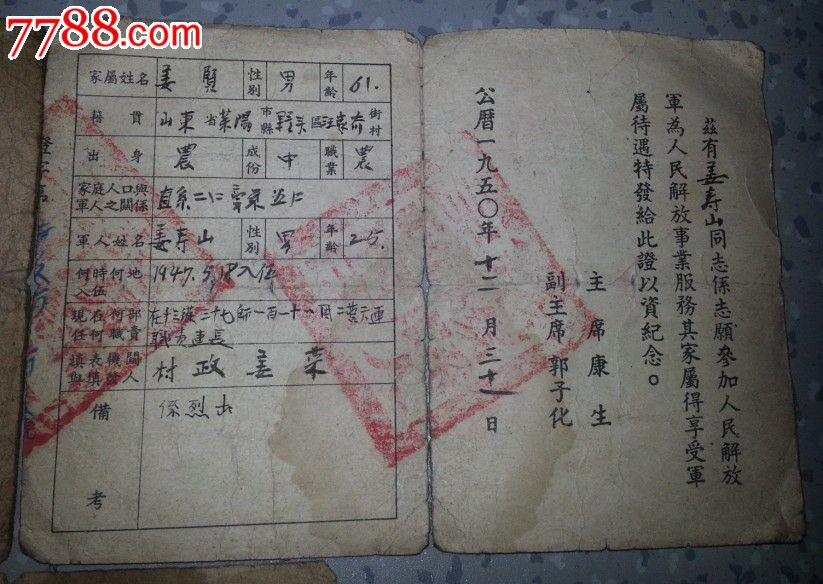 7788.com
家屬姓名 姜賢 性別 男 年齡 61.
籍貫 山東省萊陽市縣 區 街村
出身 農 成份 中 職業 農
家庭人口與軍人之關係 直系二口 五口
軍人姓名 姜寿山 性別 男 年齡 25.
何時何地入伍 1947.5.18入伍
現在何部任何職責 在十三 二十七師一百一十一团二营六連
職 連長
填表機關與填發人 村政 姜
備考 係烈士
茲有姜寿山同志係志願參加人民解放
軍為人民解放事業服務其家屬得享受軍
屬待遇特發給此證以資紀念。
主席康生
副主席郭子化
公曆一九五〇年十二月三十一日